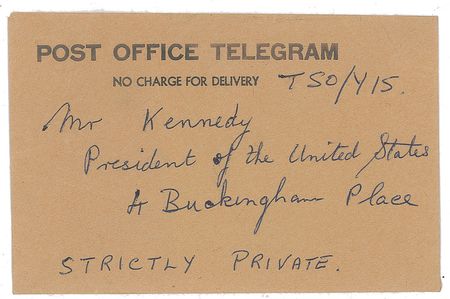 POST OFFICE TELEGRAM
NO CHARGE FOR DELIVERY TSO/Y15.
Mr Kennedy
President of the United States
4 Buckingham Place
STRICTLY PRIVATE.